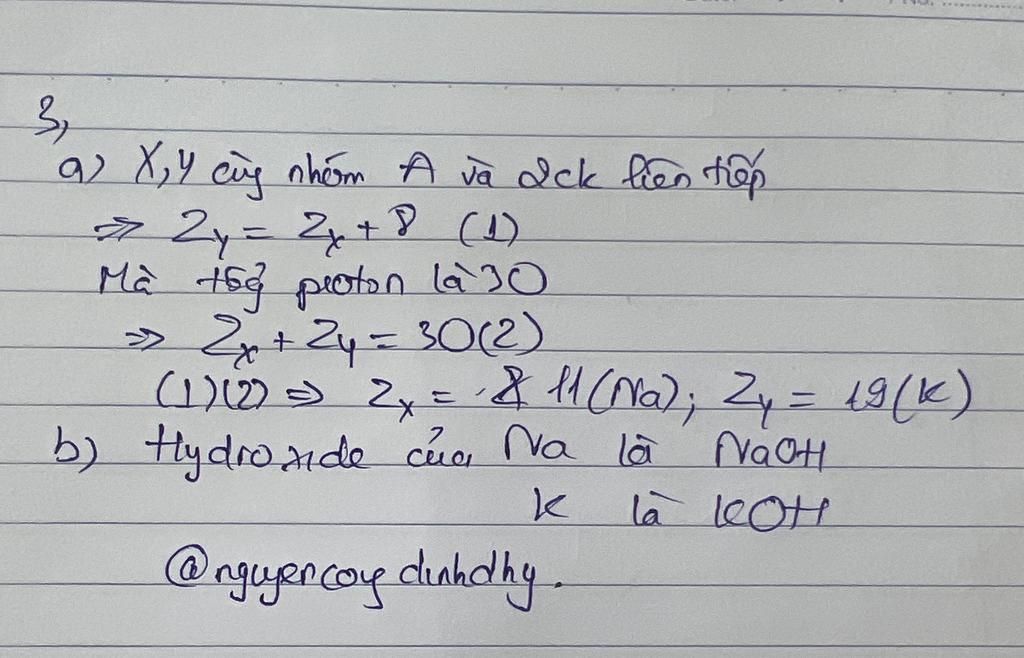 3,
a) X, Y cùg nhóm A và 2ck liên tiếp
=> Zy = Zx + 8 (1)
Mà tổg proton là 30
=> Zx + Zy = 30 (2)
(1)(2) => Zx = 11 (Na); Zy = 19 (K)
b) Hydroxide của Na là NaOH
K là KOH
@nguyencoydinhdhy.